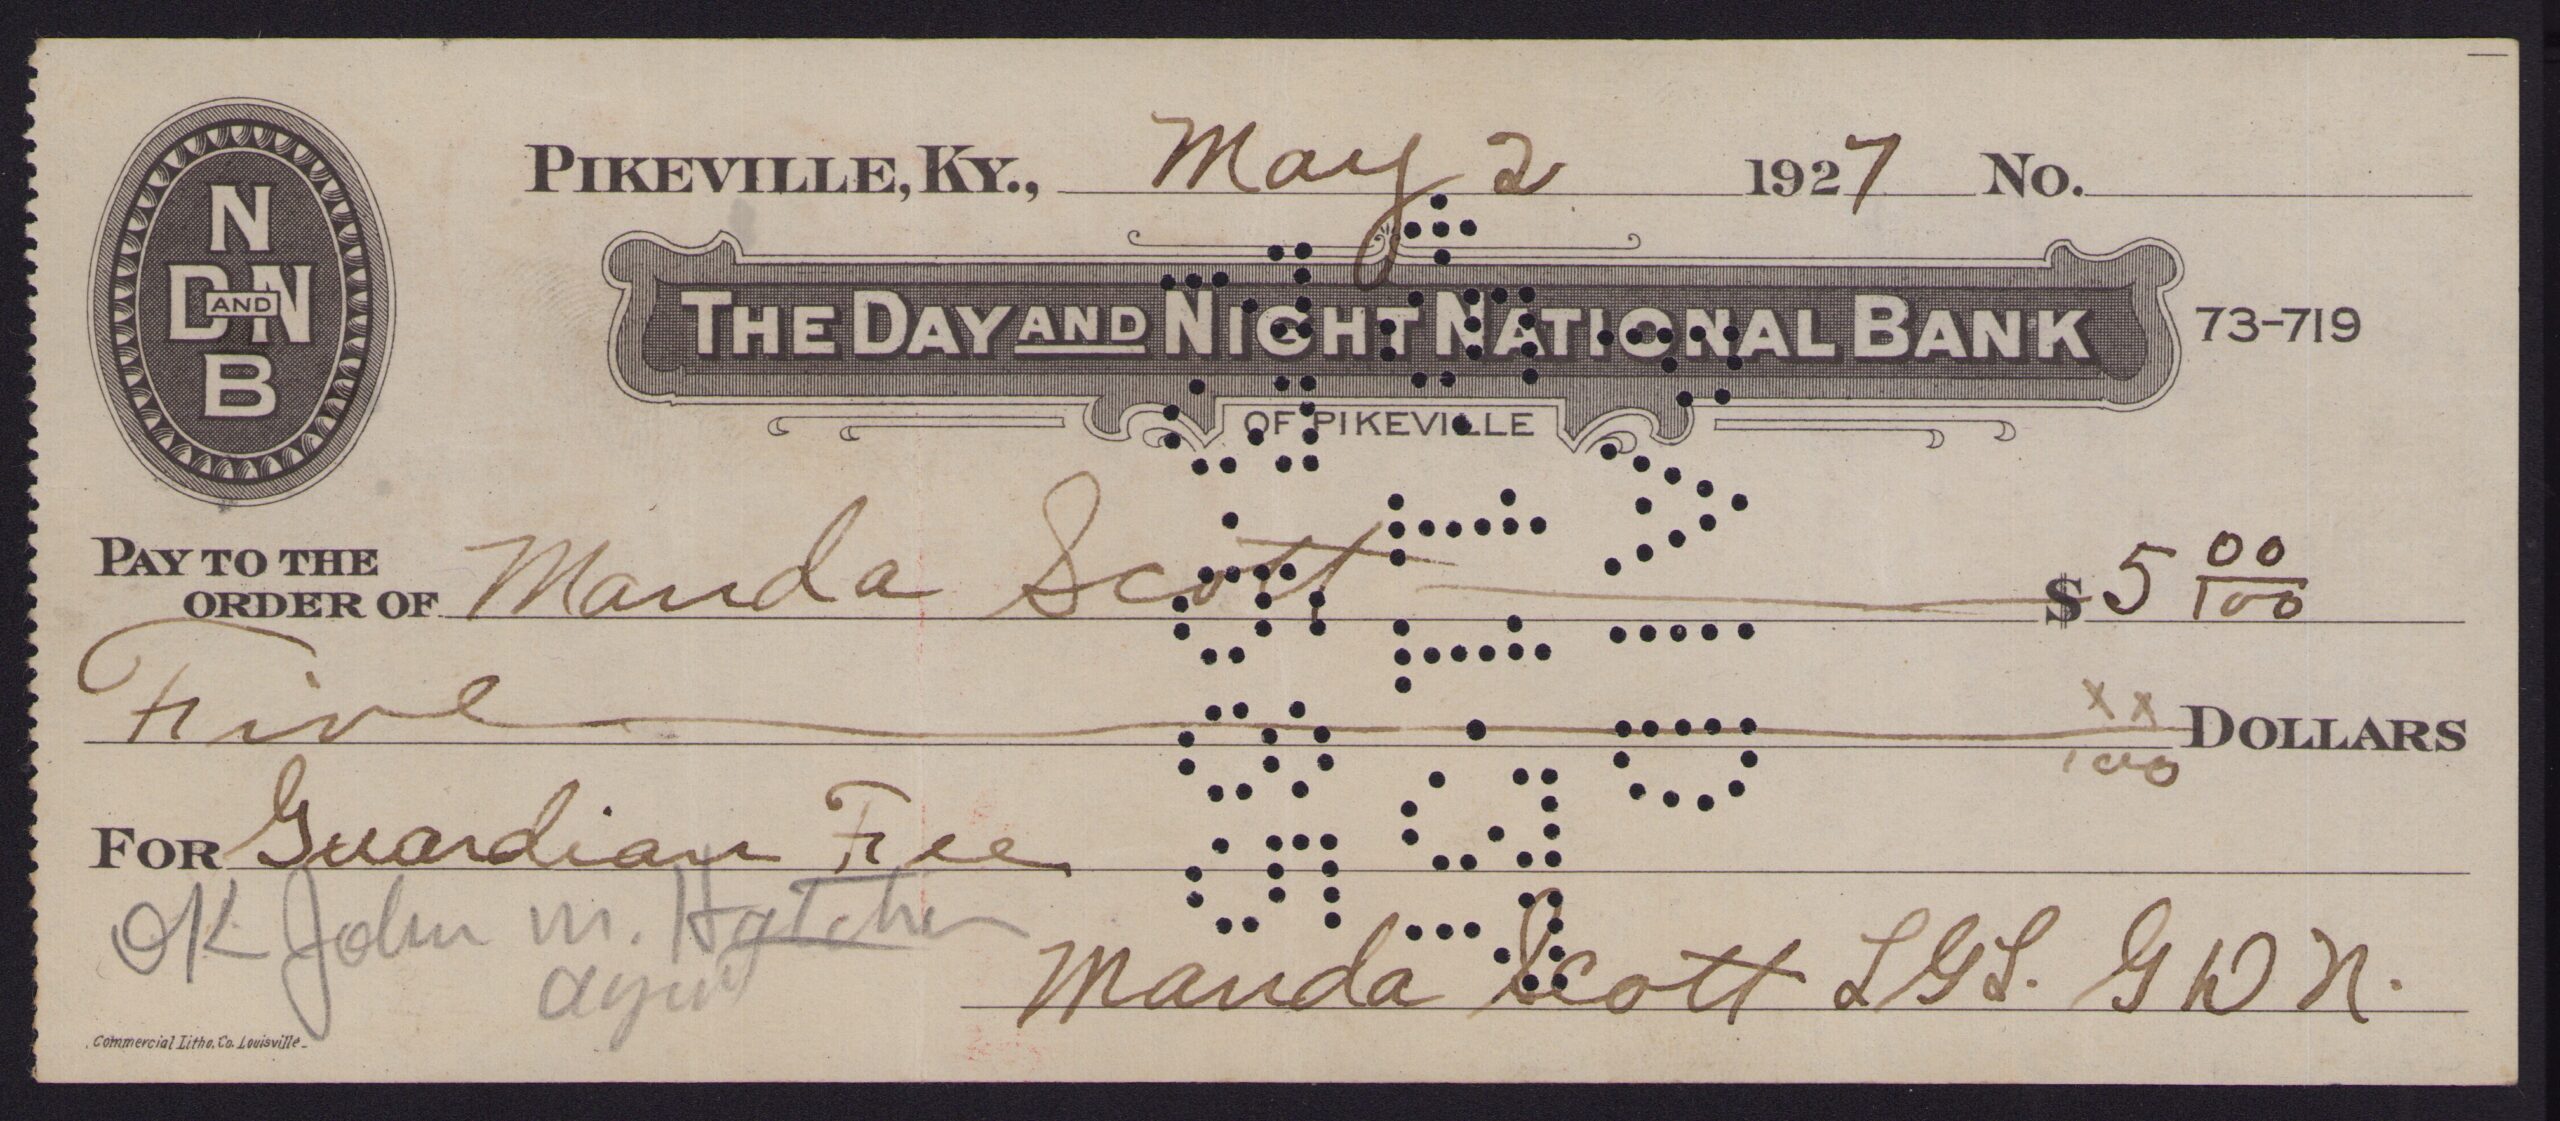 N
D AND N
B
PIKEVILLE, KY., May 2 1927 No.
THE DAY AND NIGHT NATIONAL BANK 73-719
OF PIKEVILLE
PAY TO THE
ORDER OF Manda Scott $ 5 00/100
Five xx/100 DOLLARS
FOR Guardian Fee
OK John M. Hatcher
Manda Scott
G W N.
Commercial Litho. Co. Louisville